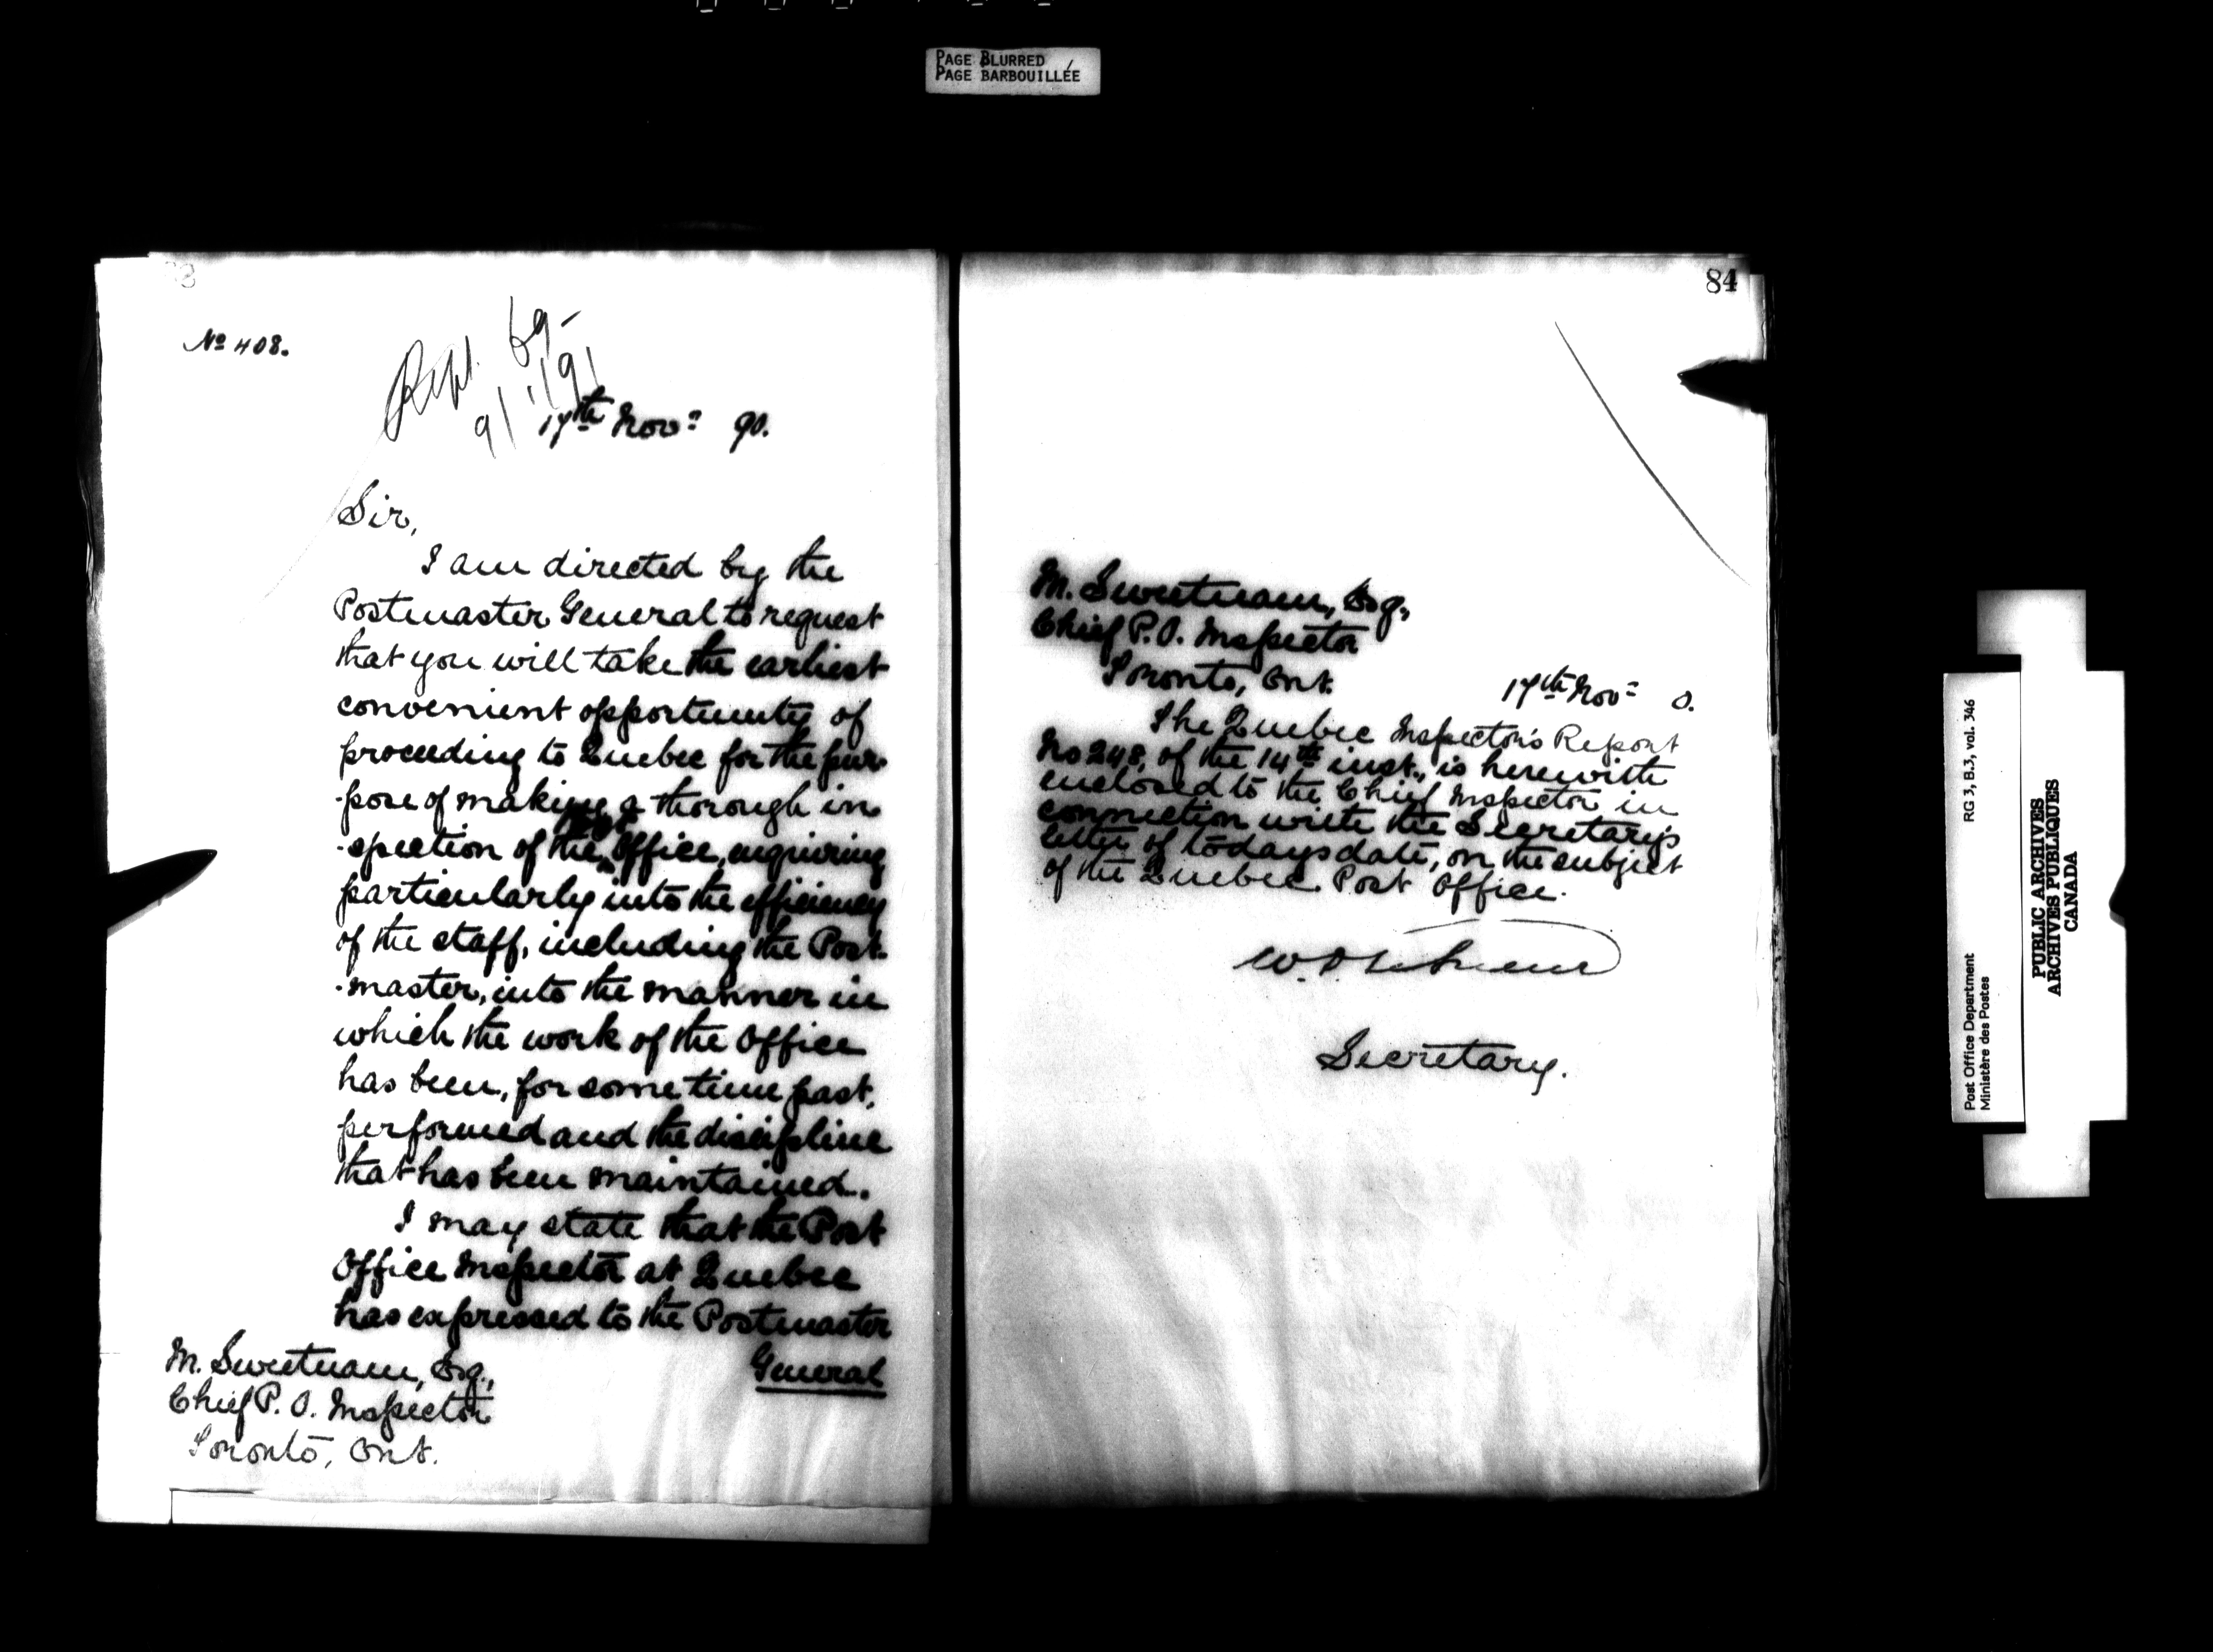 PAGE BLURRED
PAGE BARBOUILLÉE
No 408.
Rept. 69-
9/1/91
17th Novr 90.
Sir,
I am directed by the
Postmaster General to request
that you will take the earliest
convenient opportunity of
proceeding to Quebec for the pur-
-pose of making a thorough in-
-spection of the Post Office, enquiring
particularly into the efficiency
of the staff, including the Post-
-master, into the manner in
which the work of the Office
has been, for some time past,
performed and the discipline
that has been maintained.
I may state that the Post
Office Inspector at Quebec
has expressed to the Postmaster
General
M. Sweetnam, Esq.,
Chief P. O. Inspector
Toronto, Ont.
84
M. Sweetnam, Esq.,
Chief P. O. Inspector
Toronto, Ont.
17th Novr 0.
The Quebec Inspector's Report
No 248, of the 14th inst., is herewith
enclosed to the Chief Inspector in
connection with the Secretary's
letter of to-days date, on the subject
of the Quebec Post Office.
Secretary.
RG 3, B.3, vol. 346
Post Office Department
Ministère des Postes
PUBLIC ARCHIVES
ARCHIVES PUBLIQUES
CANADA